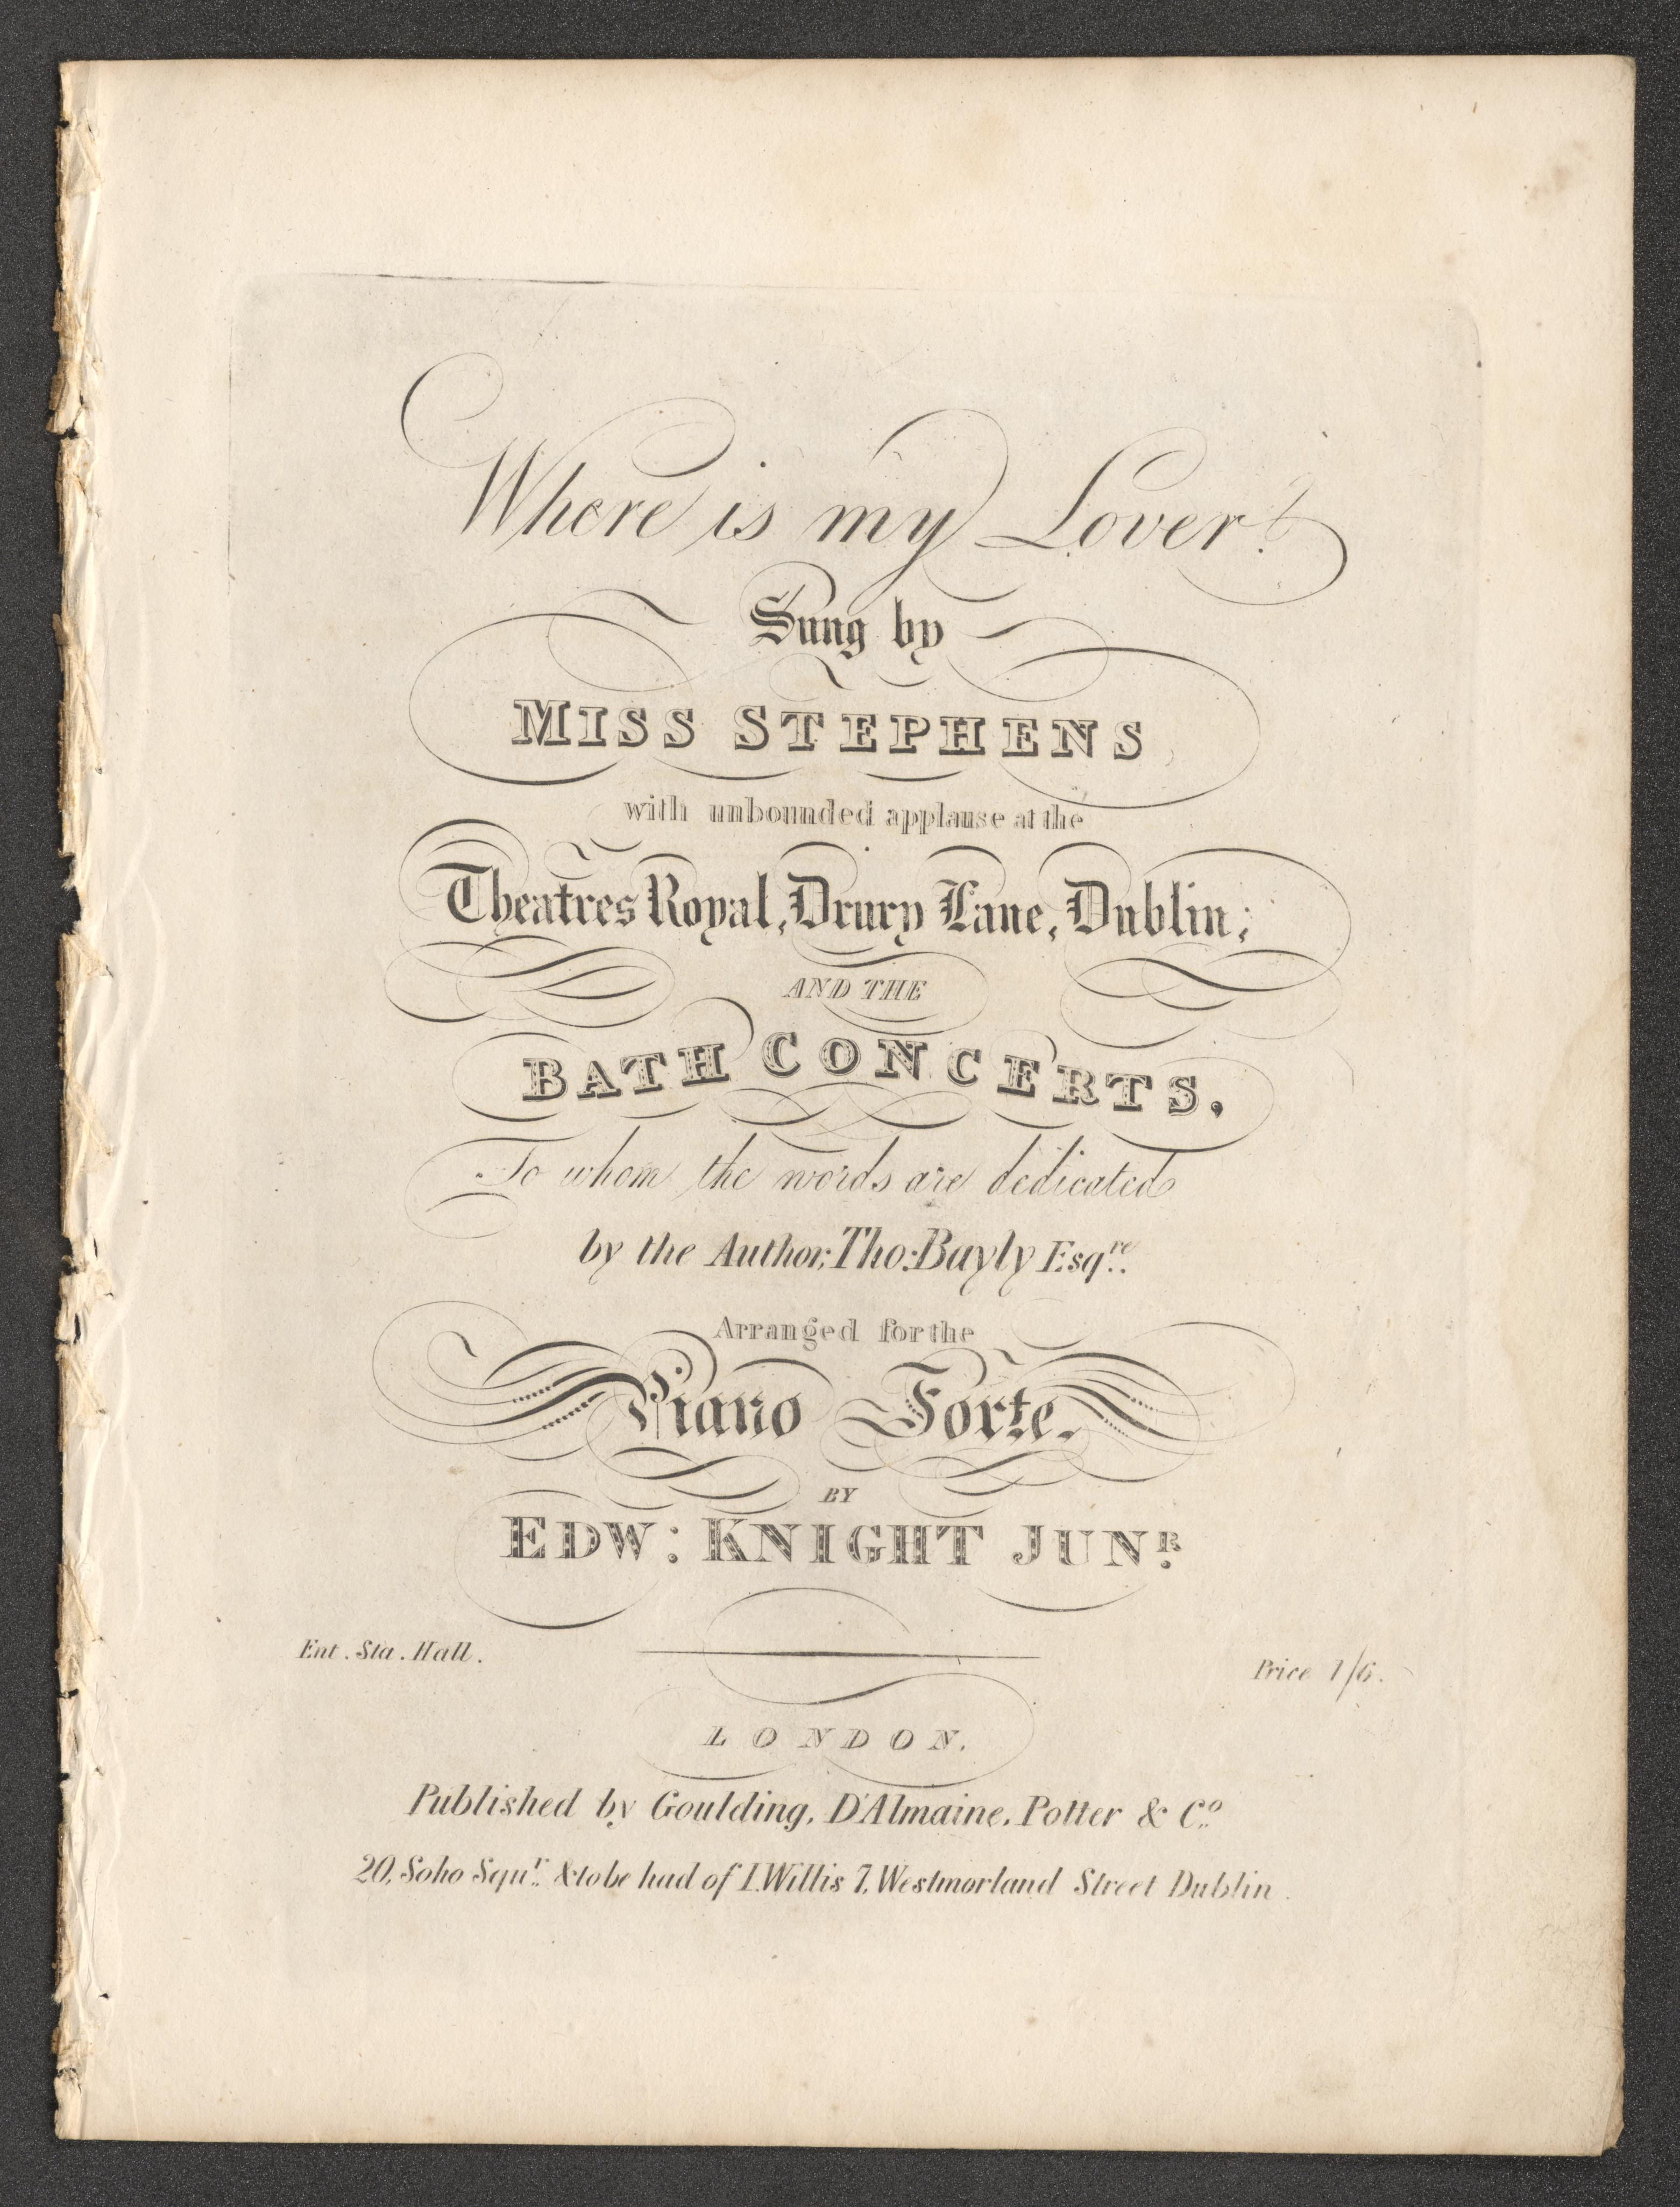 Where is my Lover?
Sung by
MISS STEPHENS
with unbounded applause at the
Theatres Royal, Drury Lane, Dublin;
AND THE
BATH CONCERTS.
To whom the words are dedicated
by the Author, Tho: Bayly Esqre.
Arranged for the
Piano Forte.
BY
EDW: KNIGHT JUNR.
Ent. Sta. Hall.
Price 1/6.
LONDON.
Published by Goulding, D'Almaine, Potter & Co.
20, Soho Squr. & to be had of I. Willis 7, Westmorland Street Dublin.